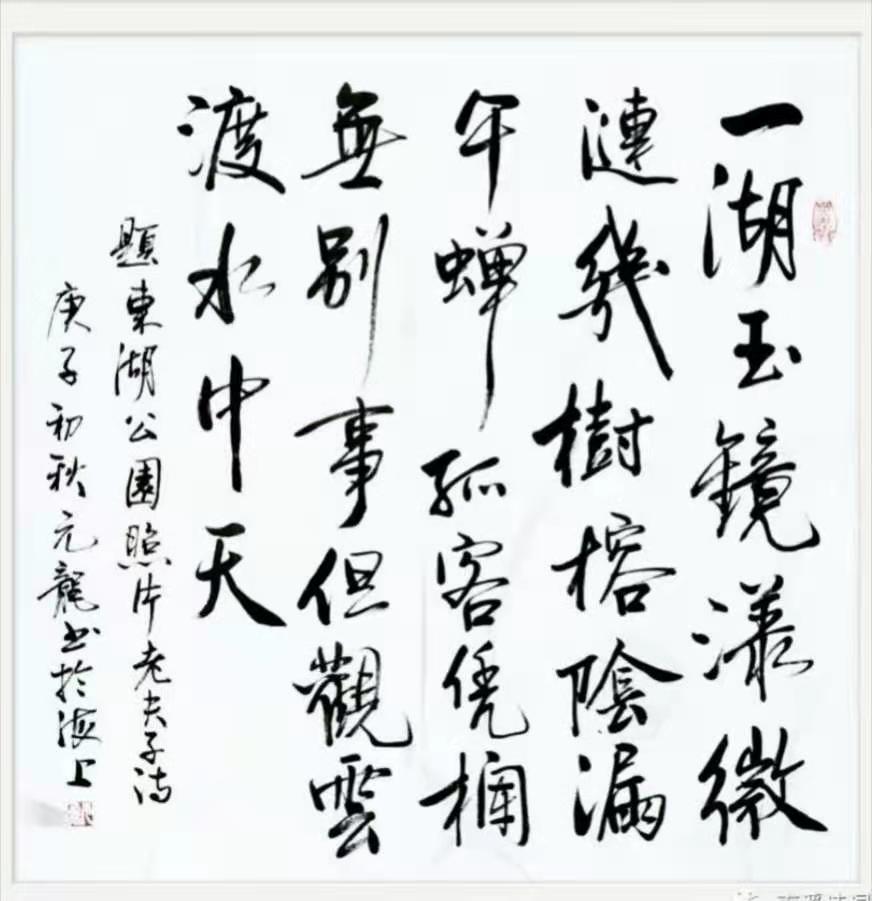 一湖玉鏡漾微
漣幾樹榕陰漏
午蝉孤客凭欄
無別事但觀雲
渡水中天
題東湖公園照片老夫子詩
庚子初秋元龍书於海上